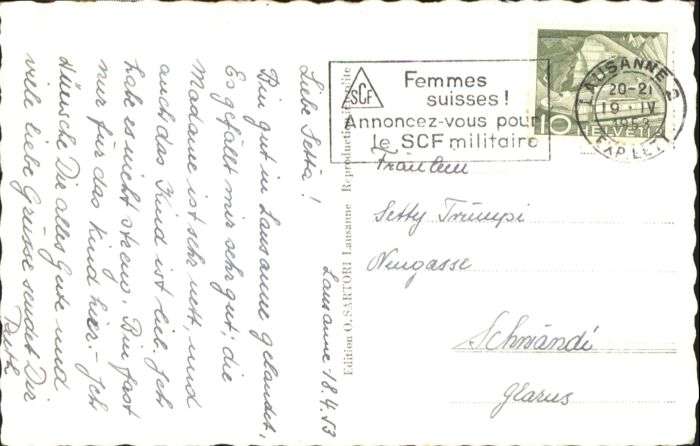 Lausanne 18.4.53
Liebe Setta!
Bin gut in Lausanne gelandet,
Es gefällt mir sehr gut, die
Madame ist sehr nett, und
auch das Kind ist lieb. Ich
habe es nicht streng. Bin fast
nur für das Kind hier. – Ich
Wünsche Dir alles Gute und
viele liebe Grüsse sendet Dir
Ruth
Edition O. SARTORI Lausanne Reproduction interdite
SCF
Femmes
suisses!
Annoncez-vous pour
le SCF militaire
LAUSANNE 2
20-21
19. IV
1953
EXP. LET
10 HELVETIA
Fräulein
Setty Trümpi
Neugasse
Schwändi
Glarus